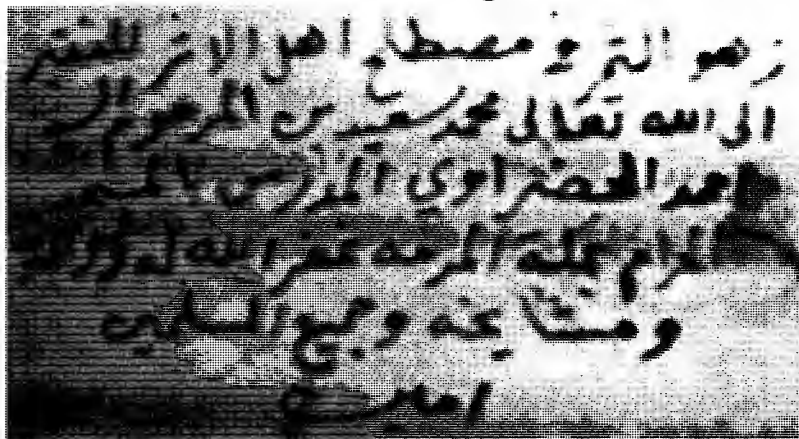 زهو الثمر في مصطلح اهل الاثر للفقير
الى الله تعالى محمد سعيد بن المرحوم
احمد الحضراوي المدرس
الحرام بمكة المشرفه غفر الله له
ومشايخه وجميع المسلمين
امين